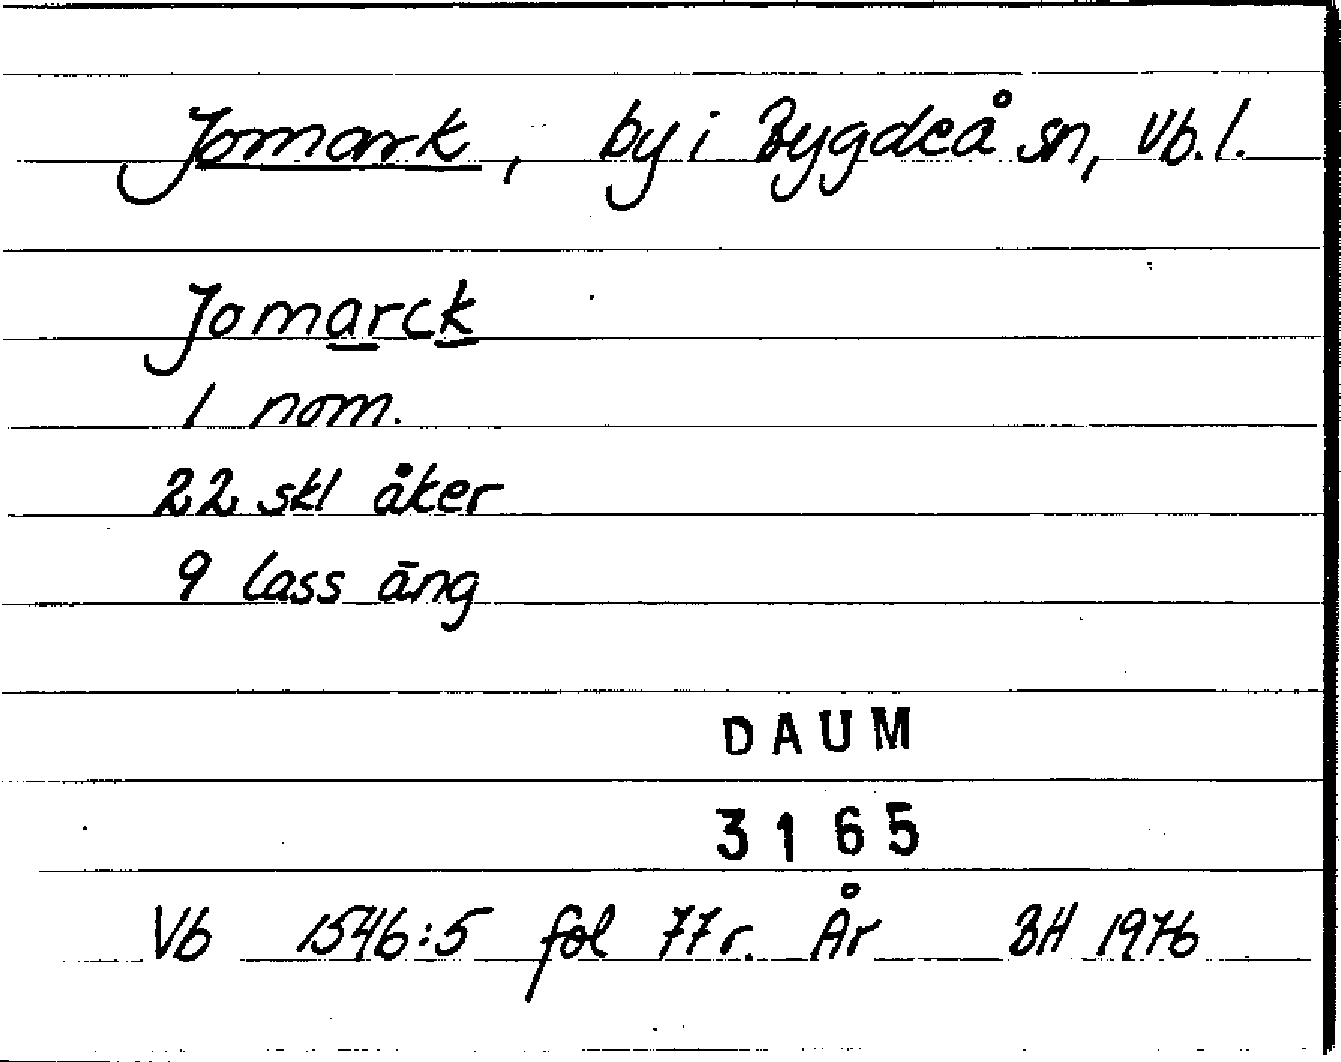 Jomark, by i Bygdeå sn, Vb. l.
Jomarck
1 nom.
22 skl åker
9 lass äng
DAUM
3165
Vb 1546:5 fol 77 r. År BH 1976